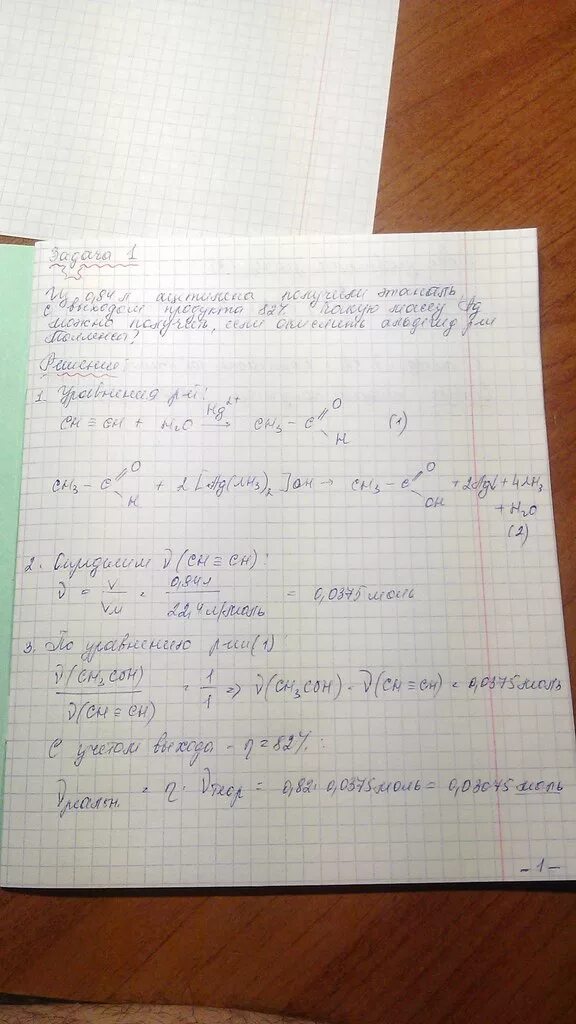 Задача 1
Из 0,84 л ацетилена получили этаналь
с выходом продукта 82%. Какую массу Ag
можно получить, если окислить альдегид р-м
Толленса?
Решение:
1. Уравнения р-й:
CH ≡ CH + H₂O →(Hg²⁺) CH₃ – C(=O)H (1)
CH₃ – C(=O)H + 2[Ag(NH₃)₂]OH → CH₃ – C(=O)OH + 2Ag↓ + 4NH₃
+ H₂O
(2)
2. Определим ν(CH ≡ CH):
ν = V/Vм = 0,84л/22,4л/моль = 0,0375 моль
3. По уравнению р-ии(1):
ν(CH₃COH)/ν(CH ≡ CH) = 1/1 ⇒ ν(CH₃COH) = ν(CH ≡ CH) = 0,0375 моль
С учетом выхода – η = 82%:
νреальн = η · νтеор = 0,82 · 0,0375 моль = 0,03075 моль
- 1 -